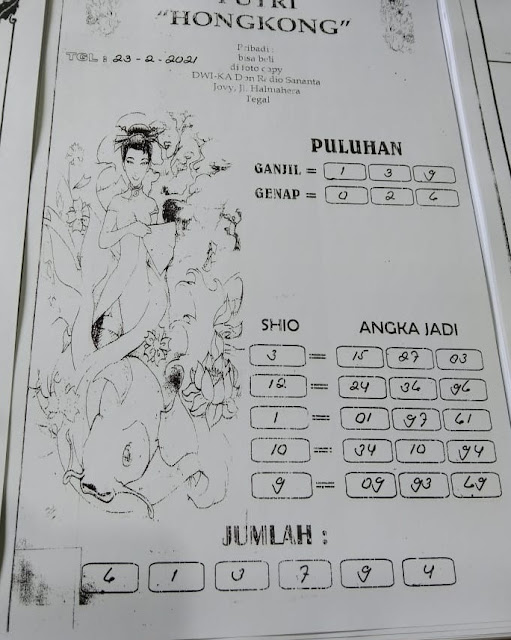 PUTRI
"HONGKONG"
TGL : 23-2-2021
Pribadi :
bisa beli
di foto copy
DWI-KA Dan Radio Sananta
Jovy, Jl. Halmahera
Tegal
PULUHAN
GANJIL = 1 3 9
GENAP = 0 2 6
SHIO ANGKA JADI
3 == 15 27 03
12 == 24 36 96
1 == 01 97 61
10 == 34 10 94
9 == 09 93 69
JUMLAH :
6 1 0 7 9 4